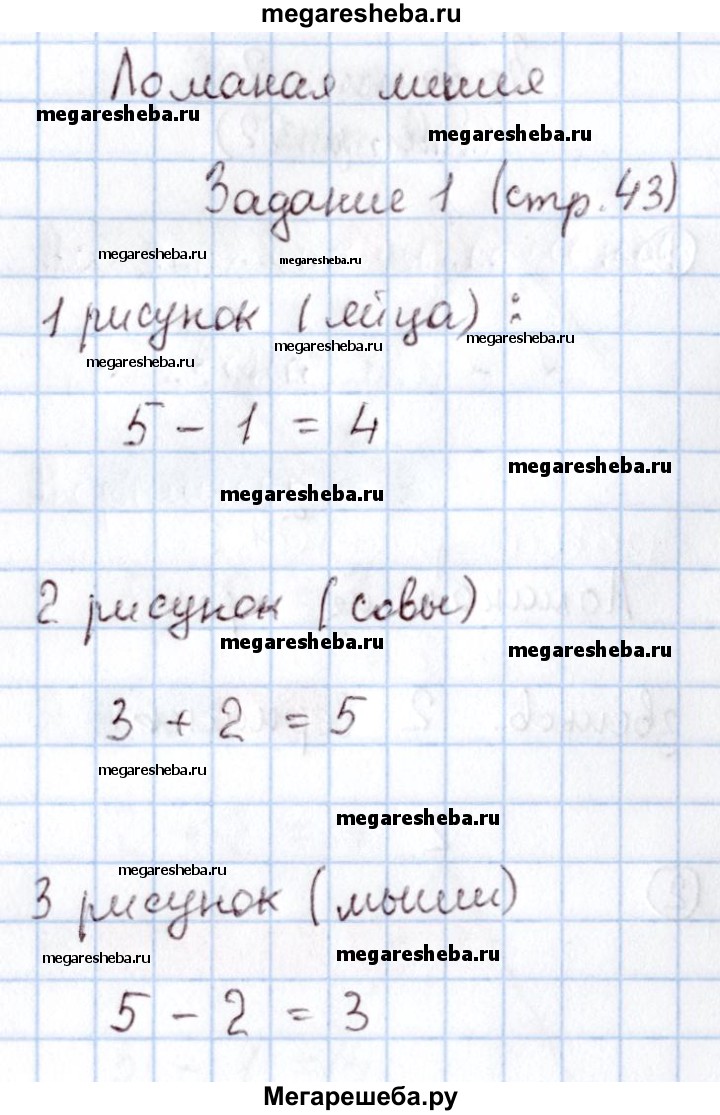 megaresheba.ru
Ломаная линия
megaresheba.ru
megaresheba.ru
Задание 1 (стр. 43)
megaresheba.ru
megaresheba.ru
1 рисунок (яйца) :
megaresheba.ru
megaresheba.ru
megaresheba.ru
5 - 1 = 4
megaresheba.ru
megaresheba.ru
2 рисунок (совы)
megaresheba.ru
megaresheba.ru
3 + 2 = 5
megaresheba.ru
megaresheba.ru
megaresheba.ru
3 рисунок (мыши)
megaresheba.ru
megaresheba.ru
5 - 2 = 3
Мегарешеба.ру